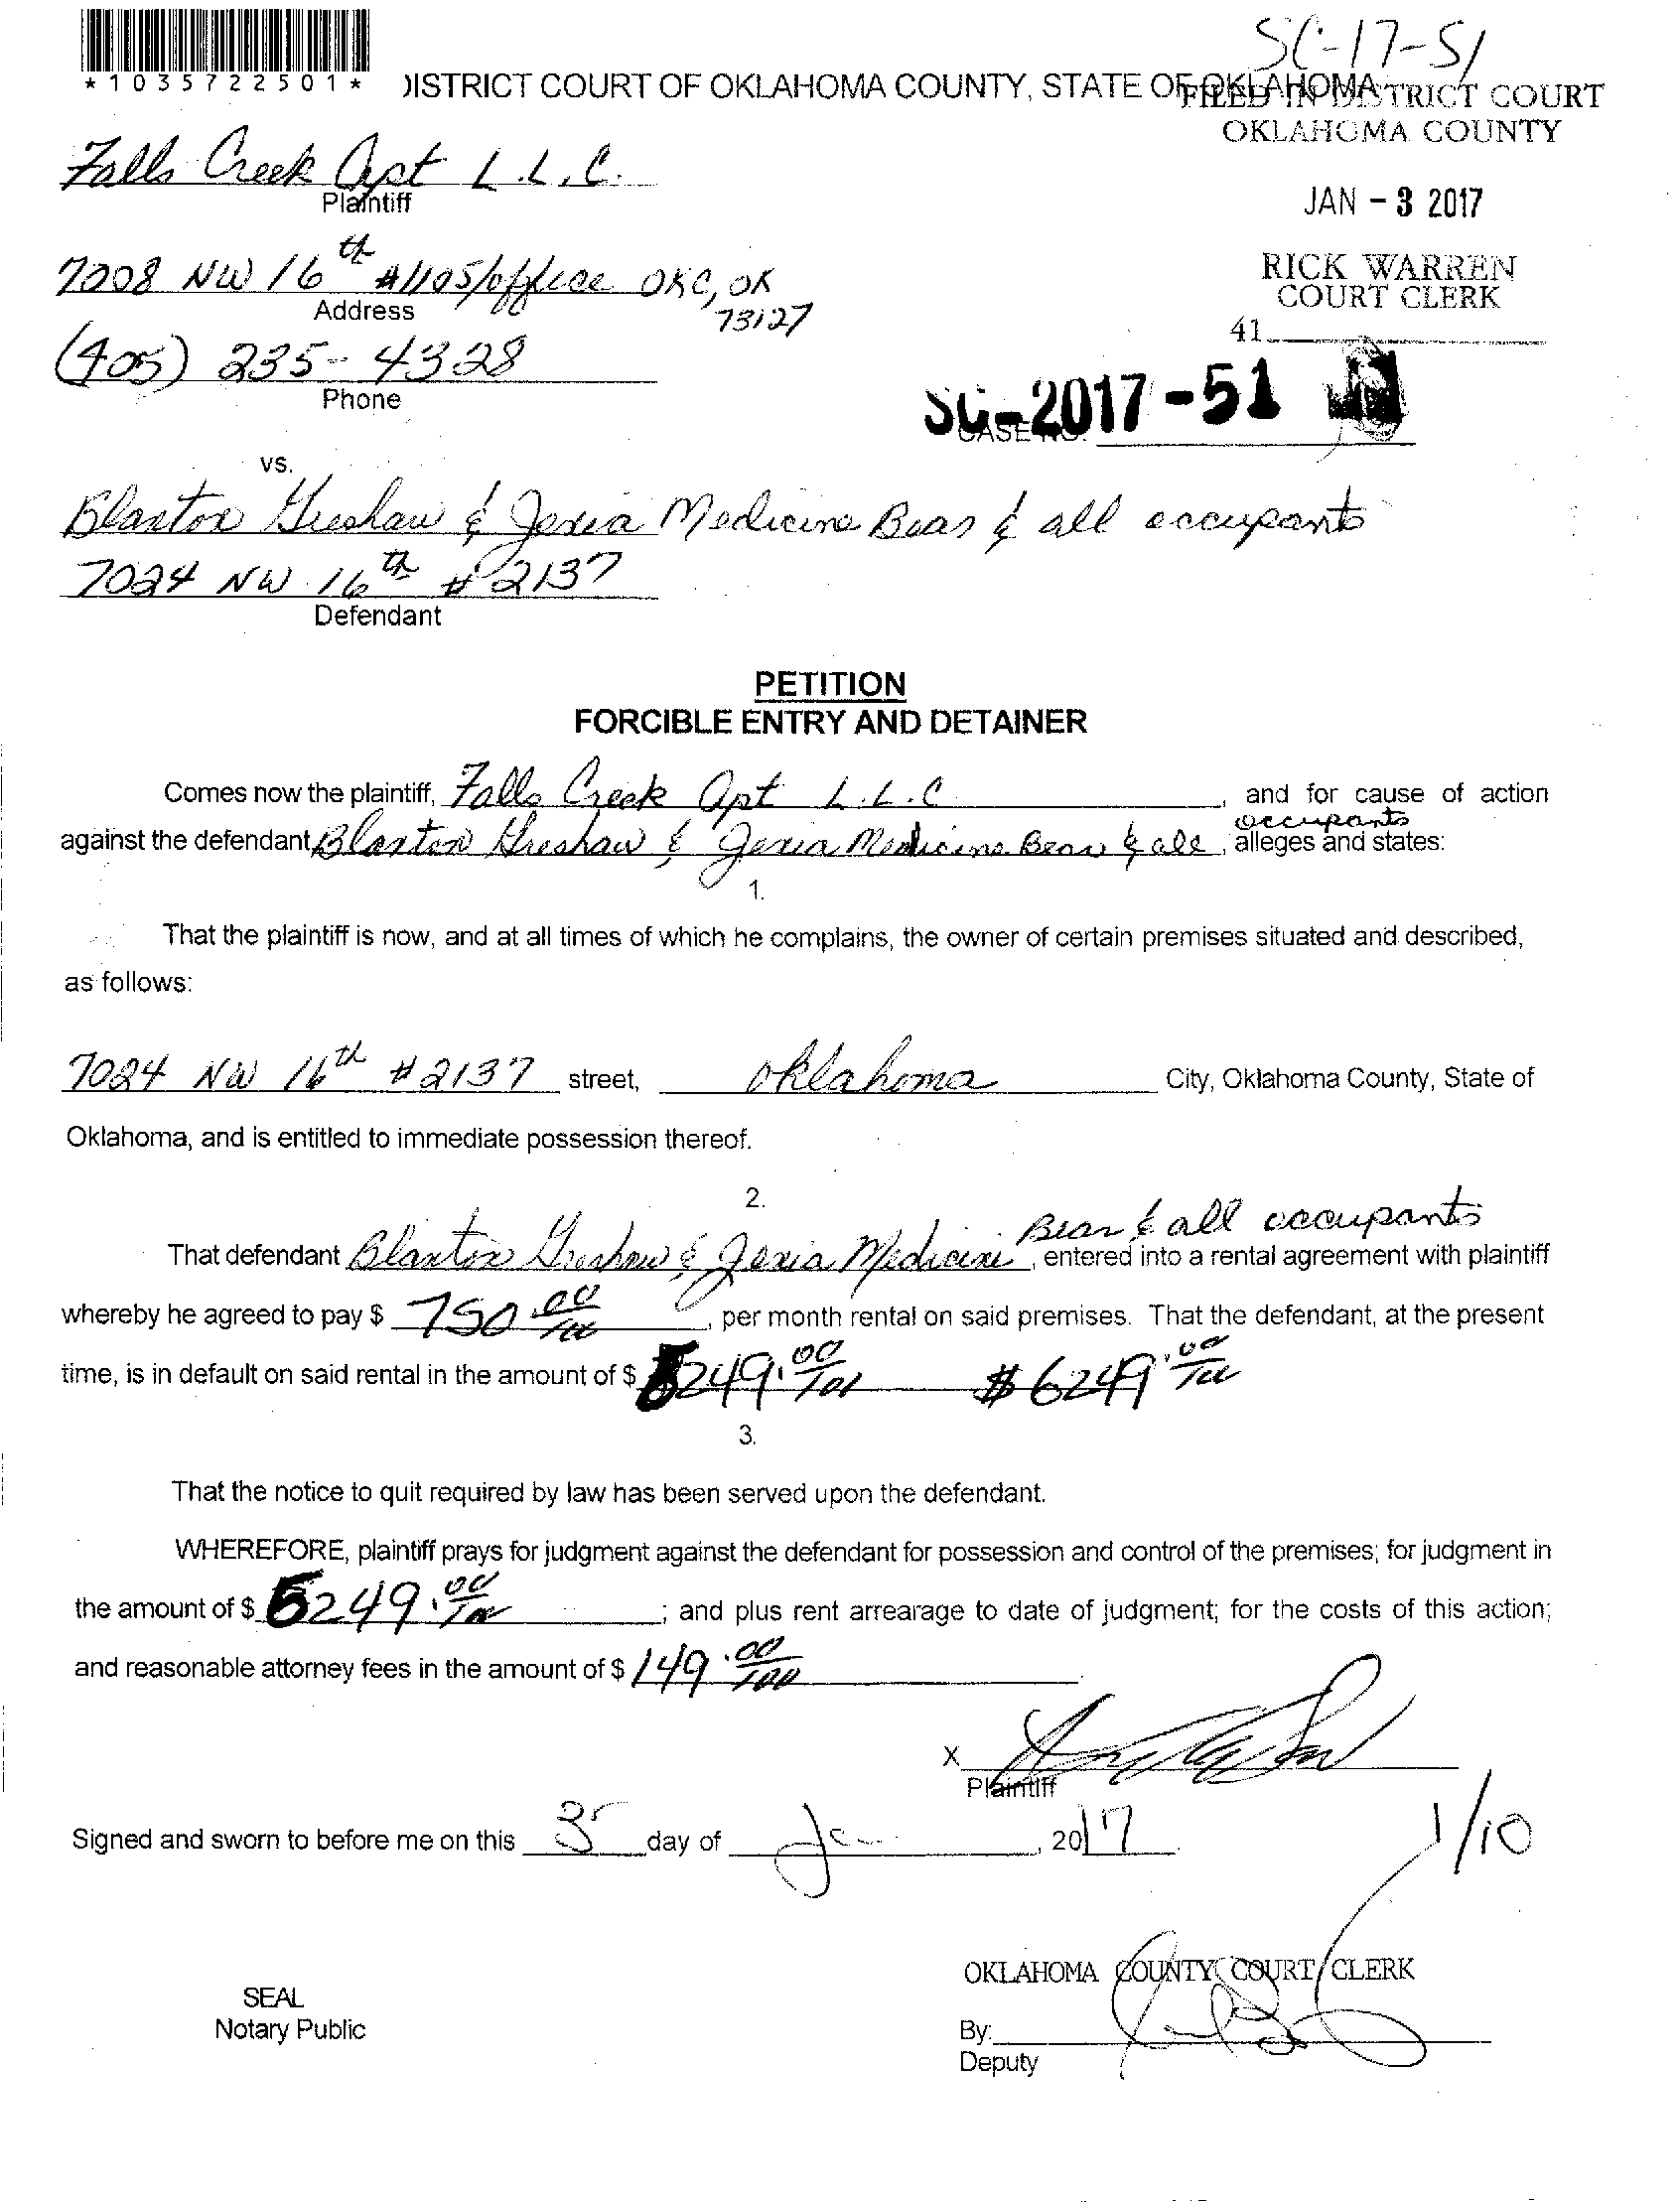 SC-17-51
*1035722501*
DISTRICT COURT OF OKLAHOMA COUNTY, STATE OF OKLAHOMA
FILED IN DISTRICT COURT
OKLAHOMA COUNTY
Falls Creek Apt L.L.C.
Plaintiff
JAN - 3 2017
7208 NW 16th #1105/office OKC, OK
73127
Address
RICK WARREN
COURT CLERK
41
(405) 235-4328
Phone
SC-2017-51
CASE NO.
vs.
Blanton Greshaw & Jexia Medicine Bear & all occupants
7024 NW 16th #2137
Defendant
PETITION
FORCIBLE ENTRY AND DETAINER
Comes now the plaintiff, Falls Creek Apt L.L.C, and for cause of action
occupants
against the defendant Blanton Greshaw & Jexia Medicine Bear & all, alleges and states:
1.
That the plaintiff is now, and at all times of which he complains, the owner of certain premises situated and described,
as follows:
7024 NW 16th #2137 street, Oklahoma City, Oklahoma County, State of
Oklahoma, and is entitled to immediate possession thereof.
2.
Bear & all occupants
That defendant Blanton Greshaw & Jexia Medicine, entered into a rental agreement with plaintiff
whereby he agreed to pay $ 750.00/100, per month rental on said premises. That the defendant, at the present
time, is in default on said rental in the amount of $ 6249.00/100 $6249.00/100
3.
That the notice to quit required by law has been served upon the defendant.
WHEREFORE, plaintiff prays for judgment against the defendant for possession and control of the premises; for judgment in
the amount of $ 6249.00/100; and plus rent arrearage to date of judgment; for the costs of this action;
and reasonable attorney fees in the amount of $ 149.00/100
X
Plaintiff
Signed and sworn to before me on this 3 day of Jan, 2017
1/10
OKLAHOMA COUNTY COURT CLERK
SEAL
Notary Public
By:
Deputy